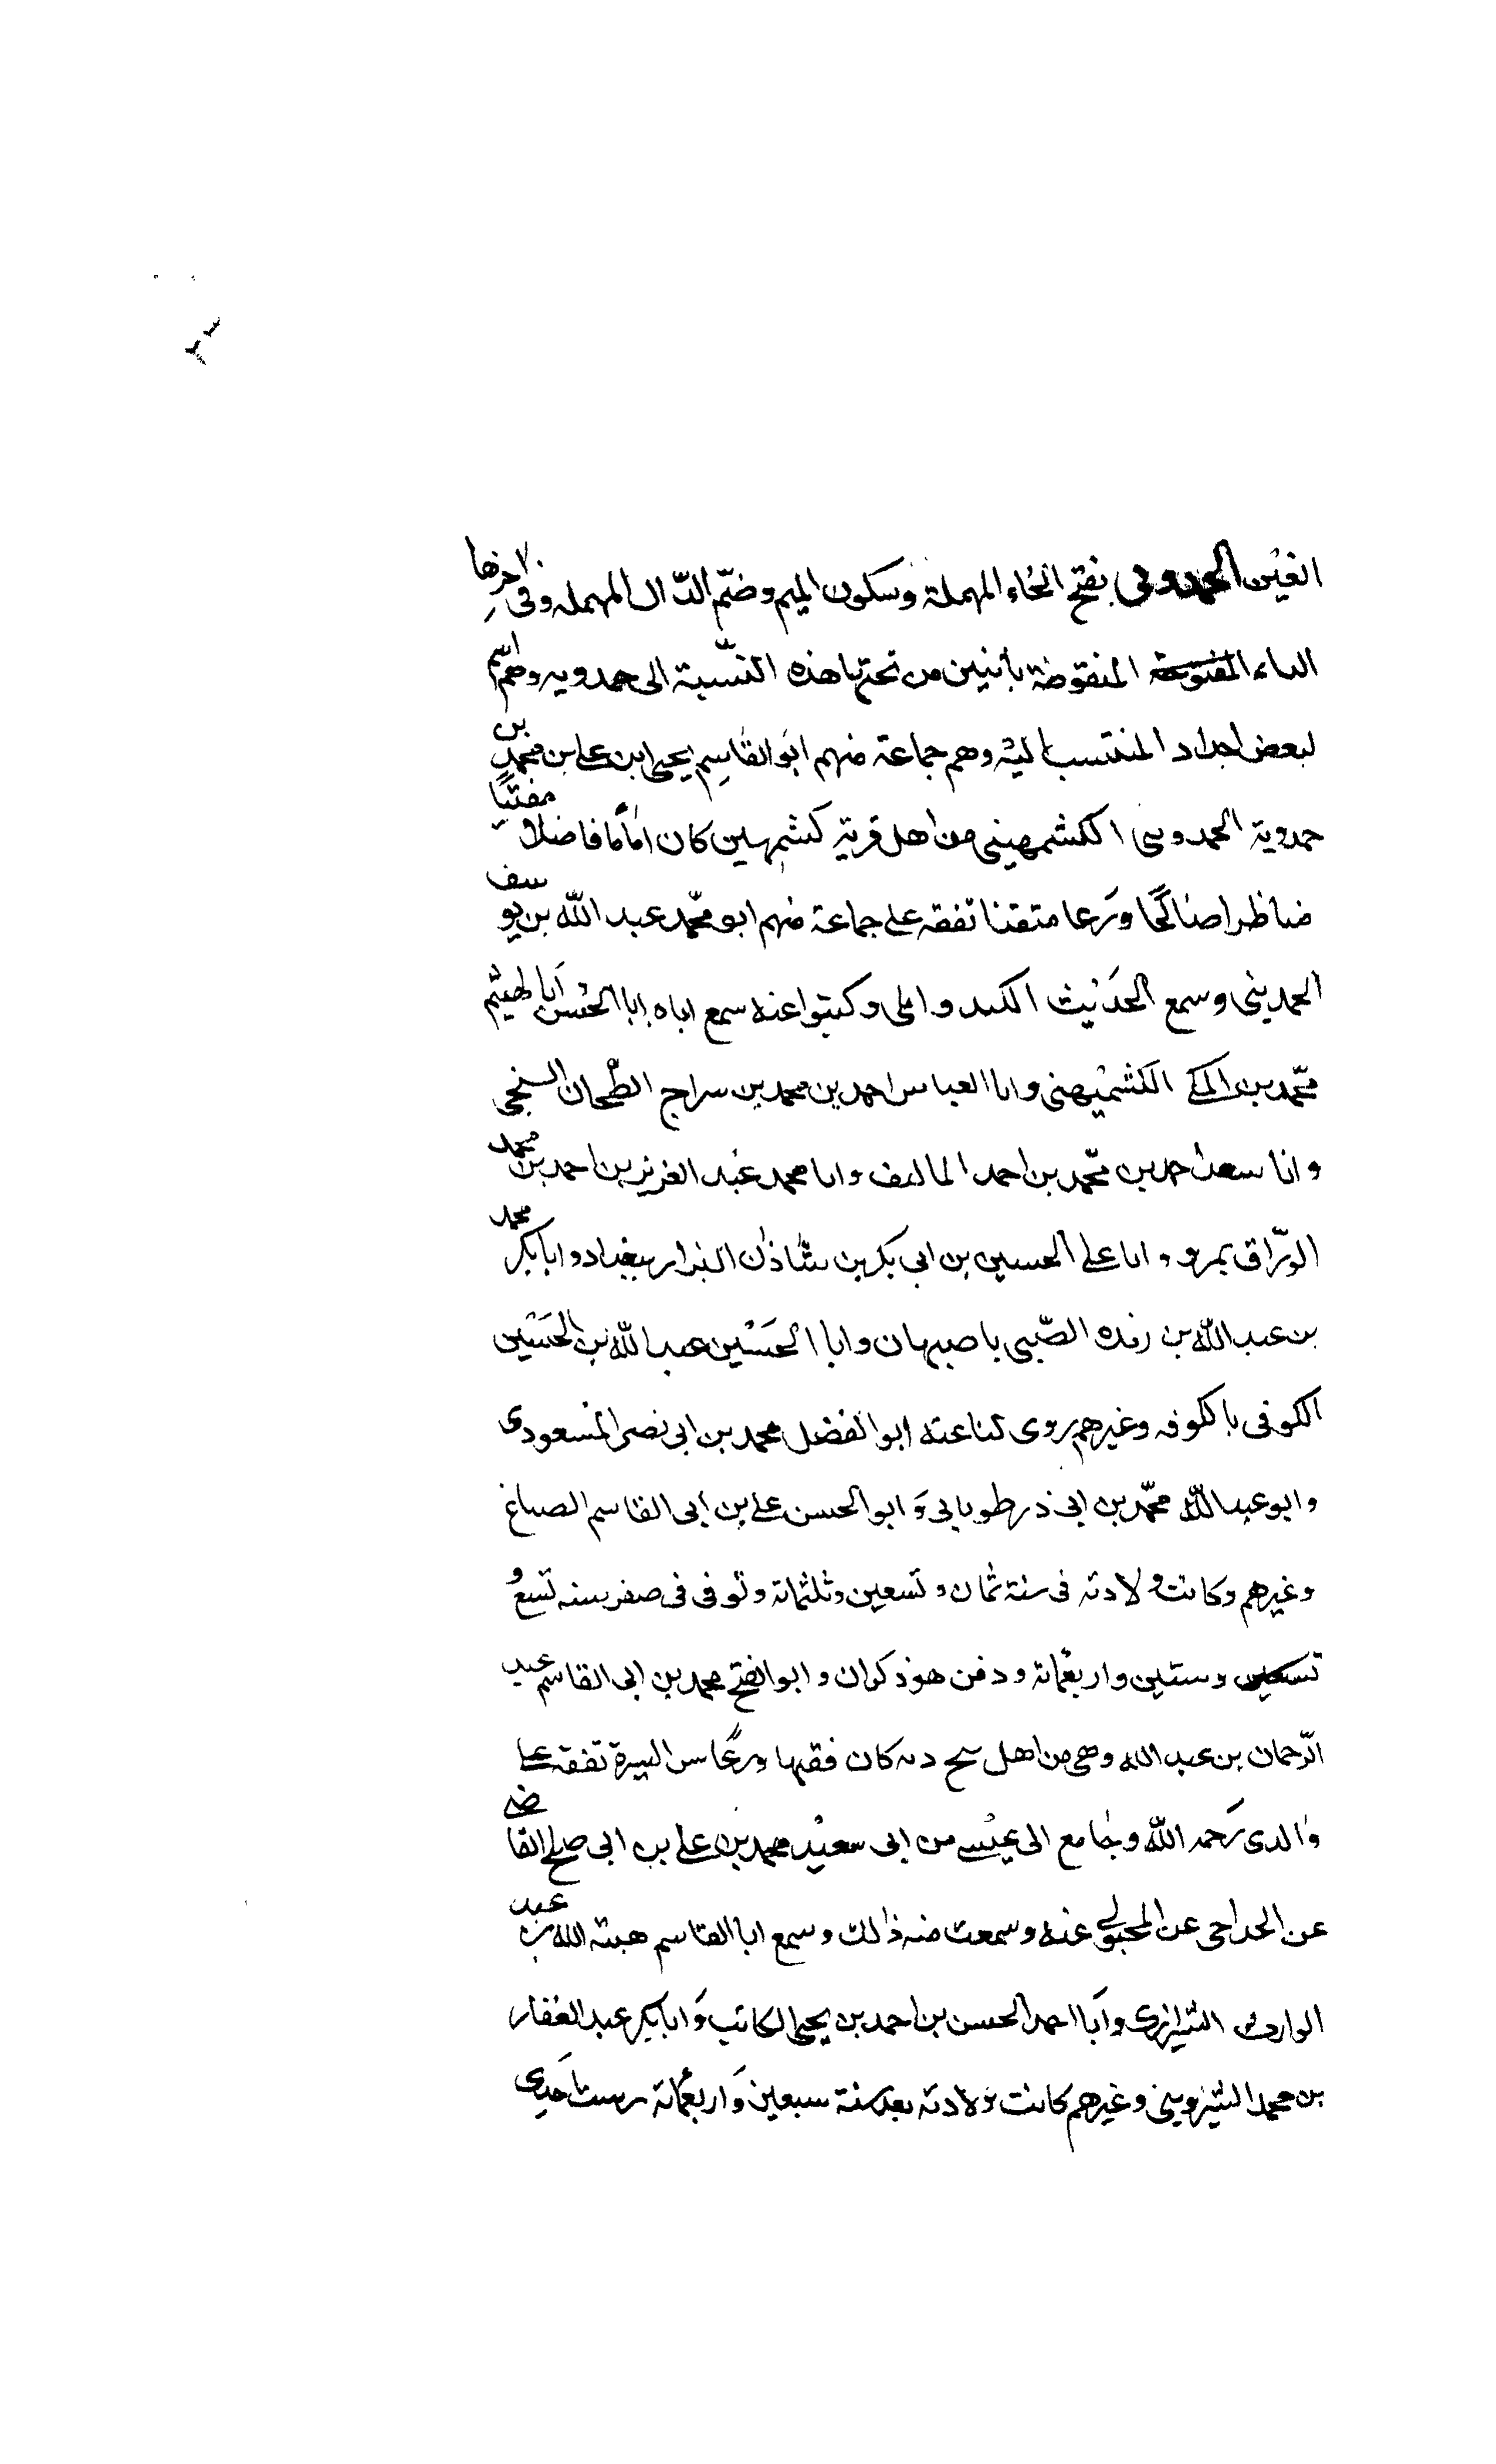 الغين الحمدوى بفتح الحاء المهملة وسكون الميم وضم الدال المهمله وفى اخرها
الياء المنقوطة باثنين من تحتها هذه النسبة الى حمدويه وهم اسم
لبعض اجداد المنتسب اليه وهم جماعة منهم ابو القاسم يحيى ابن على بن محمد بن
حمدوية الحمدوى الكشمهينى من اهل قرية كشمهين كان اماما فاضلا مفتيا
مناظرا صالحا ورعا متقنا تفقه على جماعة منهم ابو محمد عبد الله بن يوسف
وسمع الحديث الكثير واملى وكتبوا عنه سمع اباه ابا الحسن ابا الهيثم
محمد بن المكى الكشميهنى وابا العباس احمد بن محمد بن سراج الطحان السنجى
وابا سعد احمد بن محمد بن احمد المالينى وابا محمد عبد العزيز بن احمد بن محمد
الورّاق بمرو وابا على الحسين بن ابى بكر بن شاذان البزار ببغداد وابا بكر محمد
بن عبد الله بن ريذه الضّبى باصبهان وابا الحسين عبد الله بن الحسين
الكوفى بالكوفه وغيرهم روى لنا عنه ابو الفضل محمد بن ابى نصر المسعودى
وابو عبد الله محمد بن ابى ذر وابو الحسن على بن ابى القاسم الصباغ
وغيرهم وكانت ولادته فى سنة ثمان وتسعين وثلثمائة وتوفى فى صفر سنه تسع و
وستين واربعمائة ودفن وابو الفتح محمد بن ابى القاسم عبد
الرّحمان بن عبد الله من اهل كان فقيها ورعا السيرة تفقه على
والدى رحمه الله وجامع ابى عيسى من ابى سعيد محمد بن على بن ابى صالح القاضى
عن الجراحى عن المحبوبى عنه وسمعت منه ذالك وسمع ابا القاسم هبة الله بن عبد
الوارث الشيرازى وابا احمد الحسن بن احمد بن يحيى الكاتب وابا بكر عبد الغفار
بن محمد الشيرويى وغيرهم كانت ولادته بعد سنة سبعين واربعمائة احدى